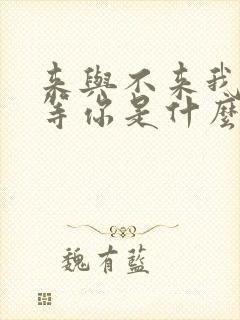 来與不来我
等你是什麼
魏有藍